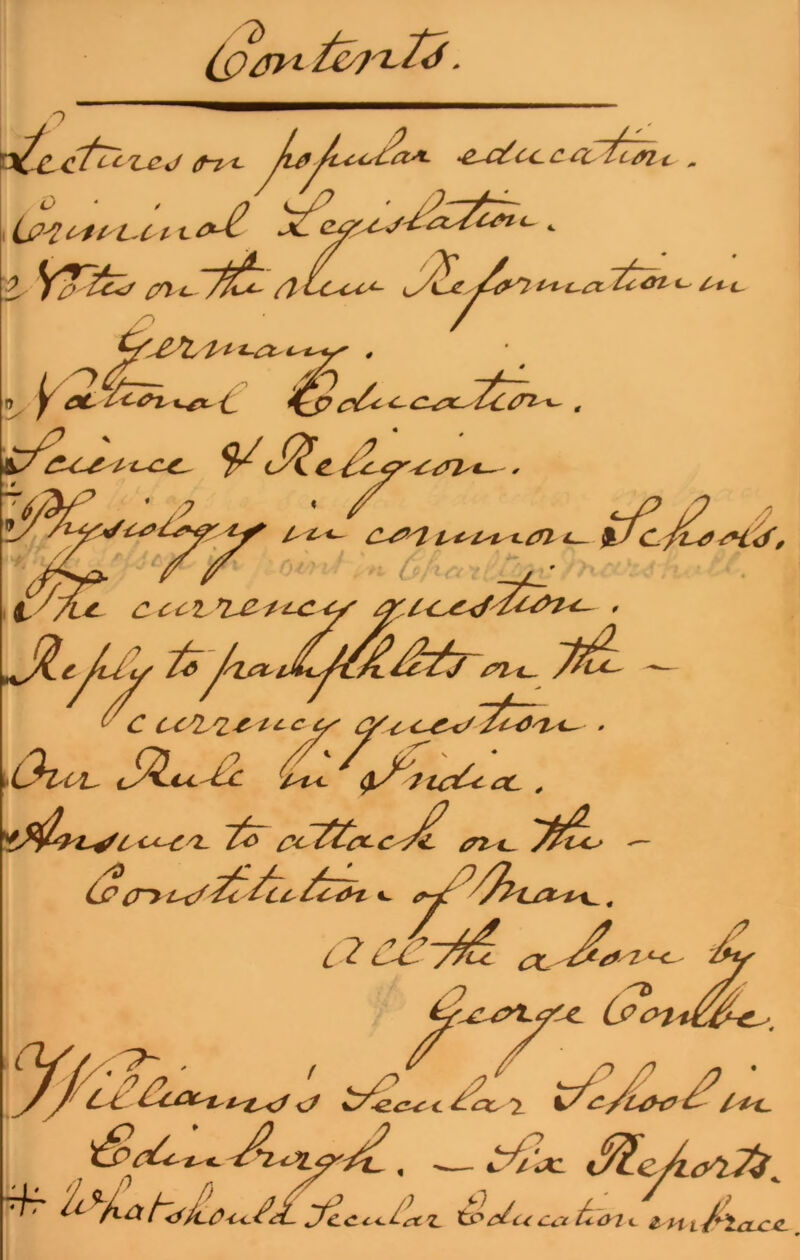 Contents.
Lectures on popular education.
Criminal Legislation.
Notes on the new Reformation in
Germany.
National Education.
Science & Religion.
Physiology in common Schools.
The currency question.
Reply to pamphlets on the —
currency question.
Our Rule in India.
Answer to attack on the —
Constitution of Man.
All the above by
George Combe.
Williams's Secular School in
Edinburgh. — Six Reports.
What should Secular Education embrace.